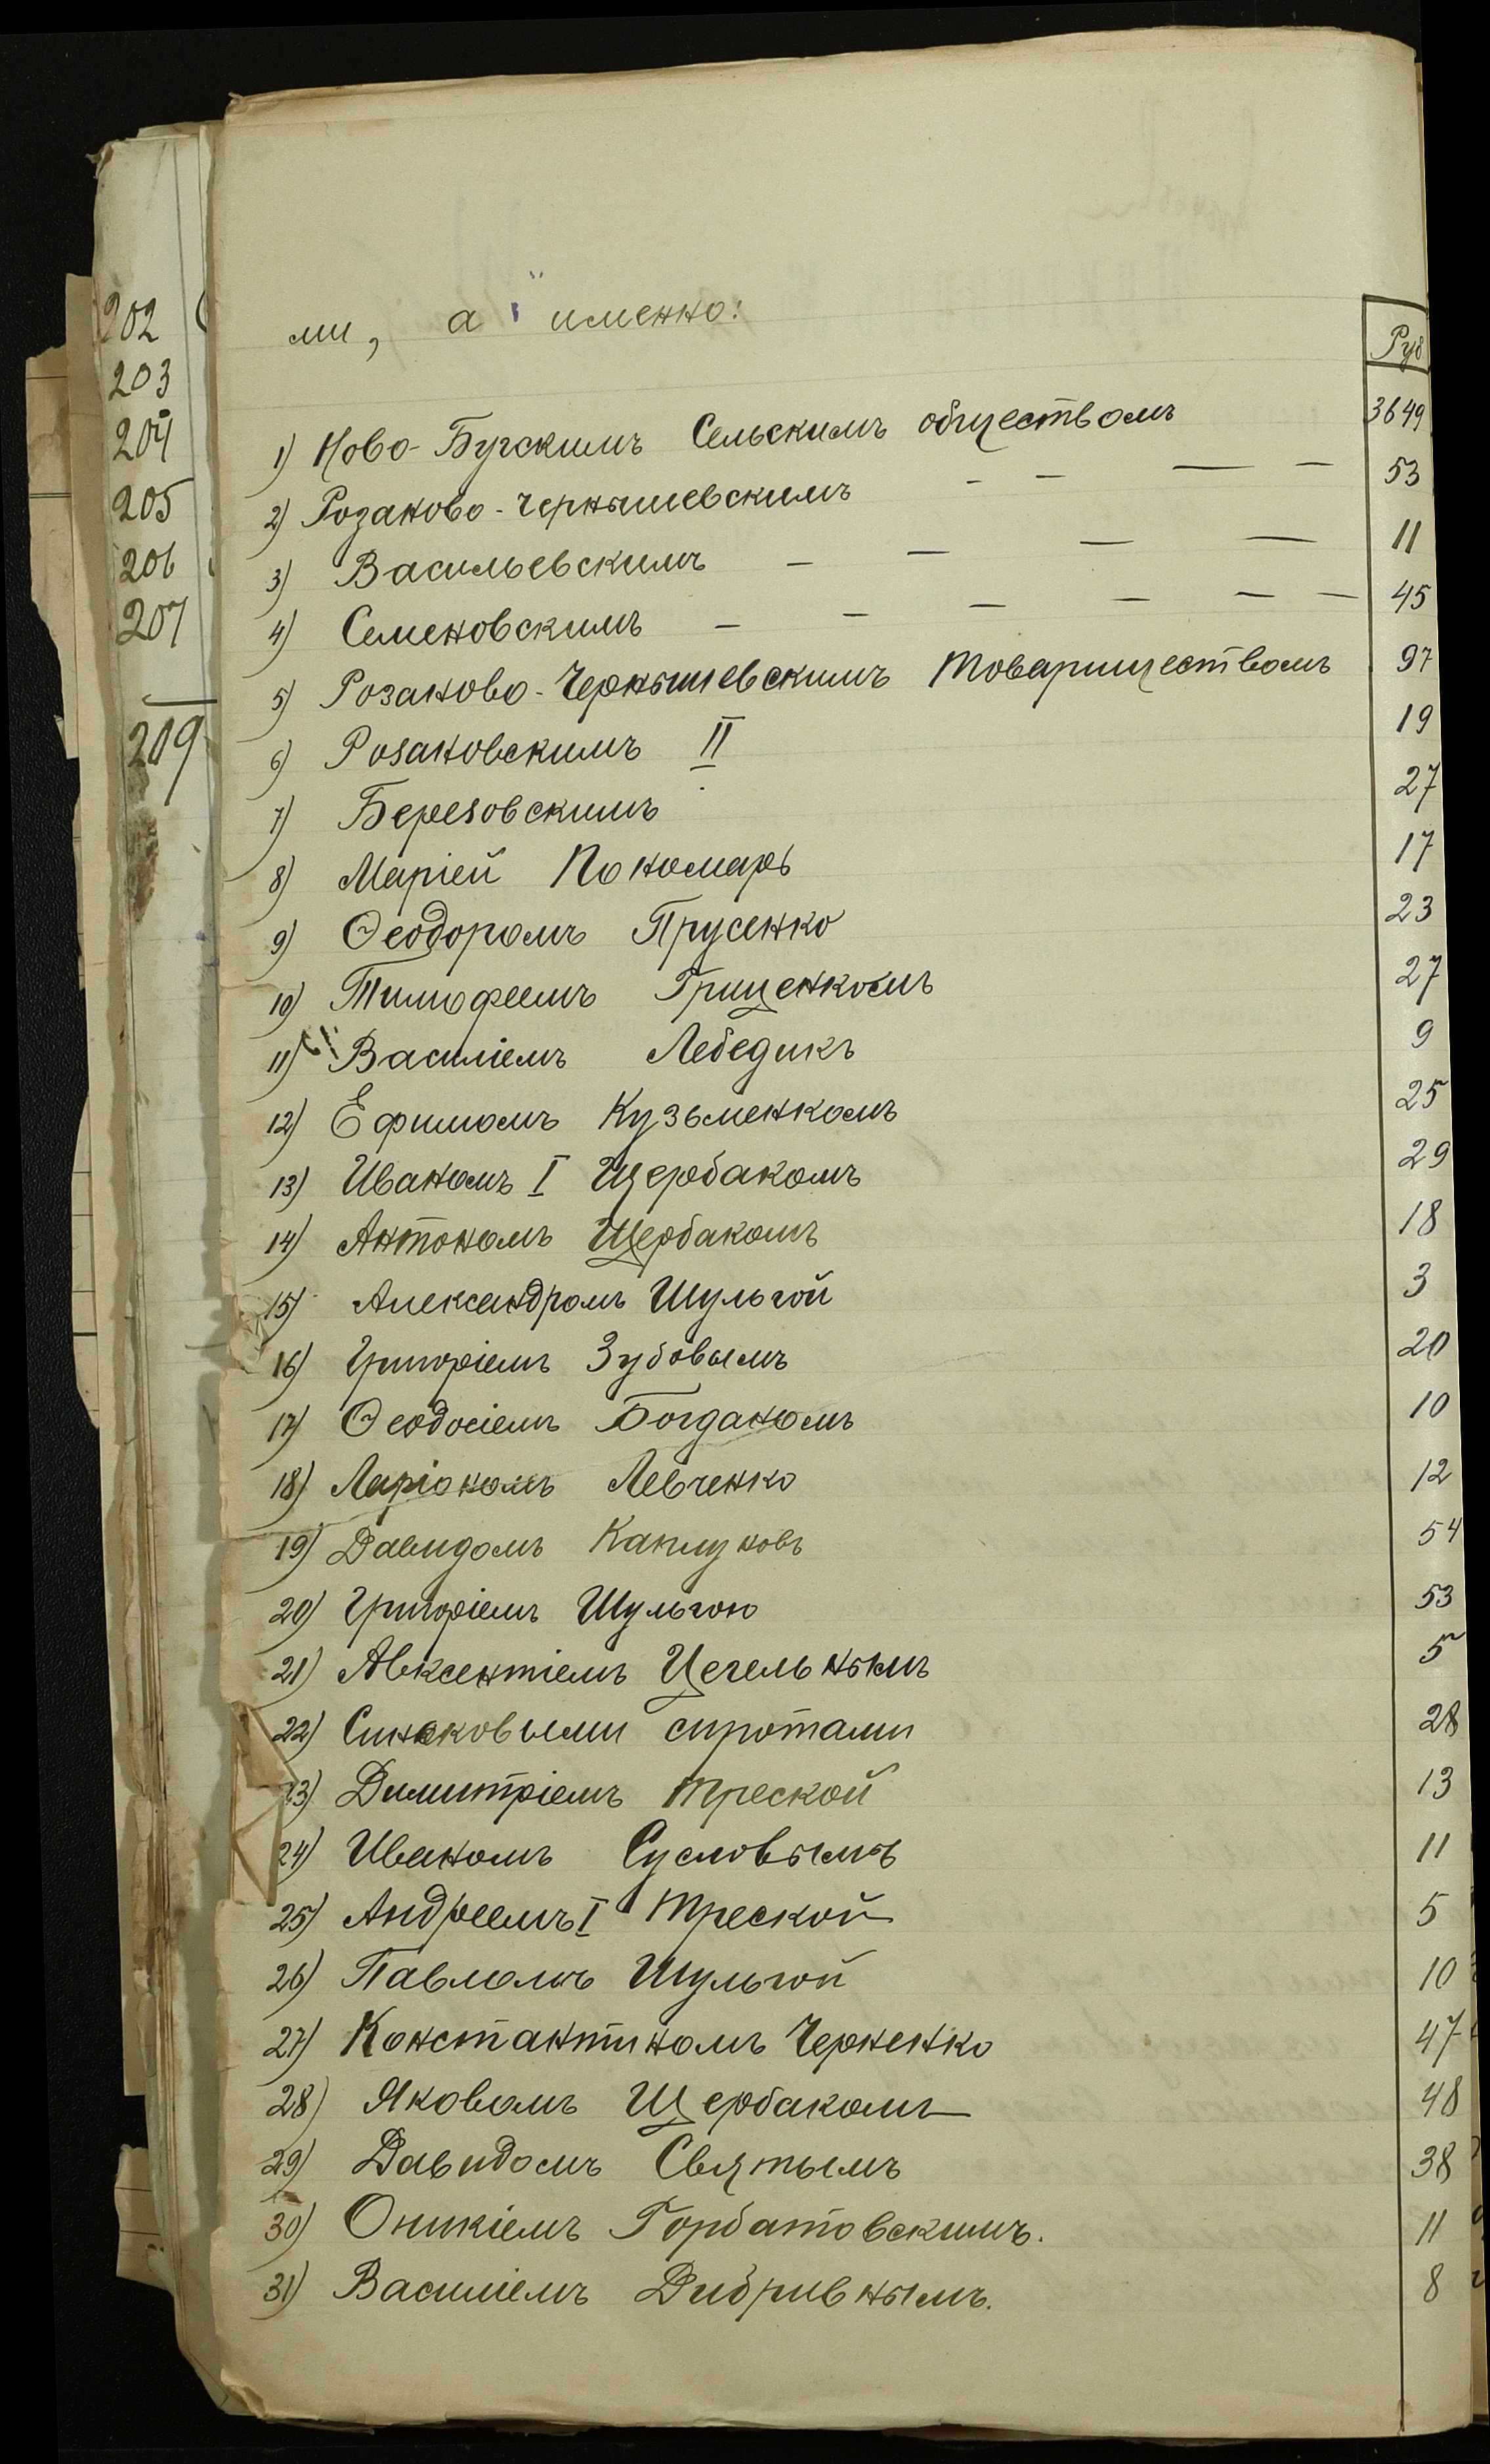 202
203
204
205
206
207
209
ми, а именно:
Руб
1) Ново-Бугскимъ Сельскимъ обществомъ 3649
2) Розаново-Чернышевскимъ - - — — 53
3) Васильевскимъ - — — — 11
4) Семеновскимъ — — — — — — 45
5) Розаново-Чернышевскимъ Товариществомъ 97
6) Розановскимъ II 19
7) Березовскимъ 27
8) Маріей Пономарь 17
9) Ѳеодоромъ Прусенко 23
10) Тимофеемъ Гриценкомъ 27
11) Василіемъ Лебедикъ 9
12) Ефимомъ Кузьменкомъ 25
13) Иваномъ I Щербакомъ 29
14) Антономъ Щербакомъ 18
15) Александромъ Шульгой 3
16) Григоріемъ Зубовымъ 20
17) Ѳеодосіемъ Богданомъ 10
18) Ларіономъ Левченко 12
19) Давидомъ Каплуновъ 54
20) Григоріемъ Шульгою 53
21) Авксентіемъ Цегельнымъ 5
22) Синяковыми сиротами 28
23) Димитріемъ Треской 13
24) Иваномъ Сусловымъ 11
25) Андреемъ I Треской 5
26) Павломъ Шульгой 10
27) Константиномъ Черненко 47
28) Яковомъ Щербакомъ 48
29) Давидомъ Святымъ 38
30) Оникіемъ Горбатовскимъ. 11
31) Василіемъ Дибривнымъ. 8